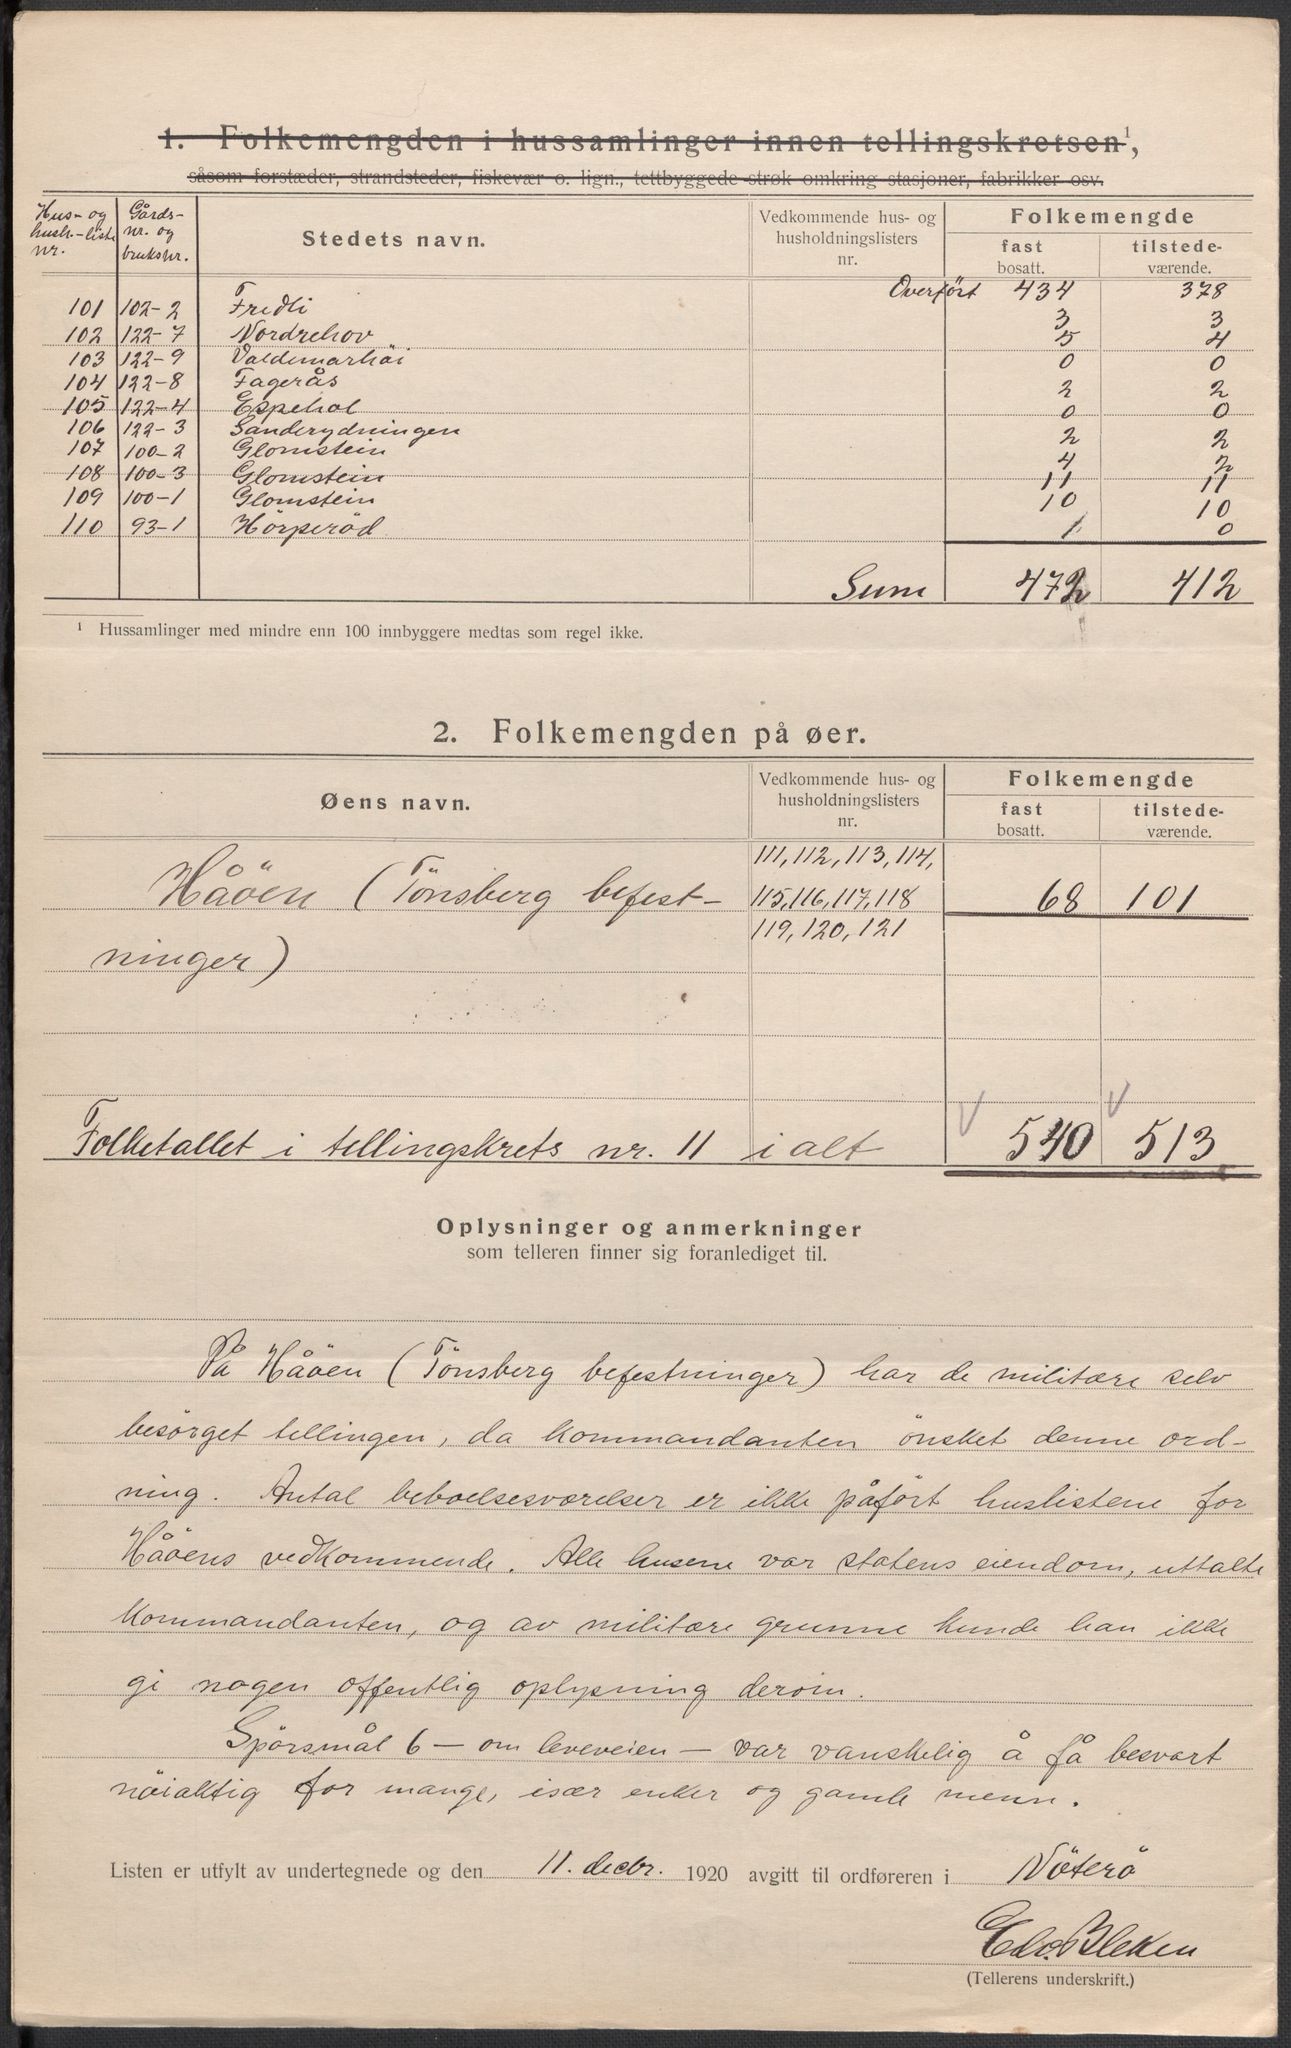 1. Folkemengden i hussamlinger innen tellingskretsen¹,
såsom forstæder, strandsteder, fiskevær o. lign., tettbyggede strøk omkring stasjoner, fabrikker osv.
Hus- og hush.-liste nr. Gårds- nr. og bruksnr. Stedets navn. Vedkommende hus- og husholdningslisters nr. Folkemengde
fast bosatt. tilstede- værende.
Overført 434 378
101 102-2 Fredli 3 3
102 122-7 Nordrehov 5 4
103 122-9 Valdemarhöi 0 0
104 122-8 Fagerås 2 2
105 122-4 Espehol 0 0
106 122-3 Sanderydningen 2 2
107 100-2 Glomstein 4 2
108 100-3 Glomstein 11 11
109 100-1 Glomstein 10 10
110 93-1 Hörperöd 1 0
Sum 472 412
¹ Hussamlinger med mindre enn 100 innbyggere medtas som regel ikke.
2. Folkemengden på øer.
Øens navn. Vedkommende hus- og husholdningslisters nr. Folkemengde
fast bosatt. tilstede- værende.
111, 112, 113, 114,
Håöen (Tönsberg befest- 115, 116, 117, 118 68 101
119, 120, 121
ninger)
Folketallet i tellingskrets nr. 11 i alt 540 513
Oplysninger og anmerkninger
som telleren finner sig foranlediget til.
På Håöen (Tönsberg befestninger) har de militære selv
besörget tellingen, da kommandanten önsket denne ord-
ning. Antal beboelsesværelser er ikke påfört huslistene for
Håöens vedkommende. Alle husene var statens eiendom, uttalte
kommandanten, og av militære grunne kunde han ikke
gi nogen offentlig oplysning derom.
Spörsmål 6 - om leveveien - var vanskelig å få besvart
nöiaktig for mange, især enker og gamle menn.
Listen er utfylt av undertegnede og den 11. decbr. 1920 avgitt til ordføreren i Nöterö
Bleken
(Tellerens underskrift.)